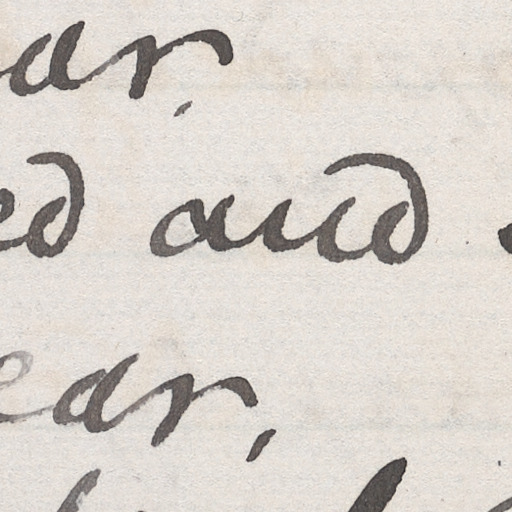 ar,
ed and
ear,